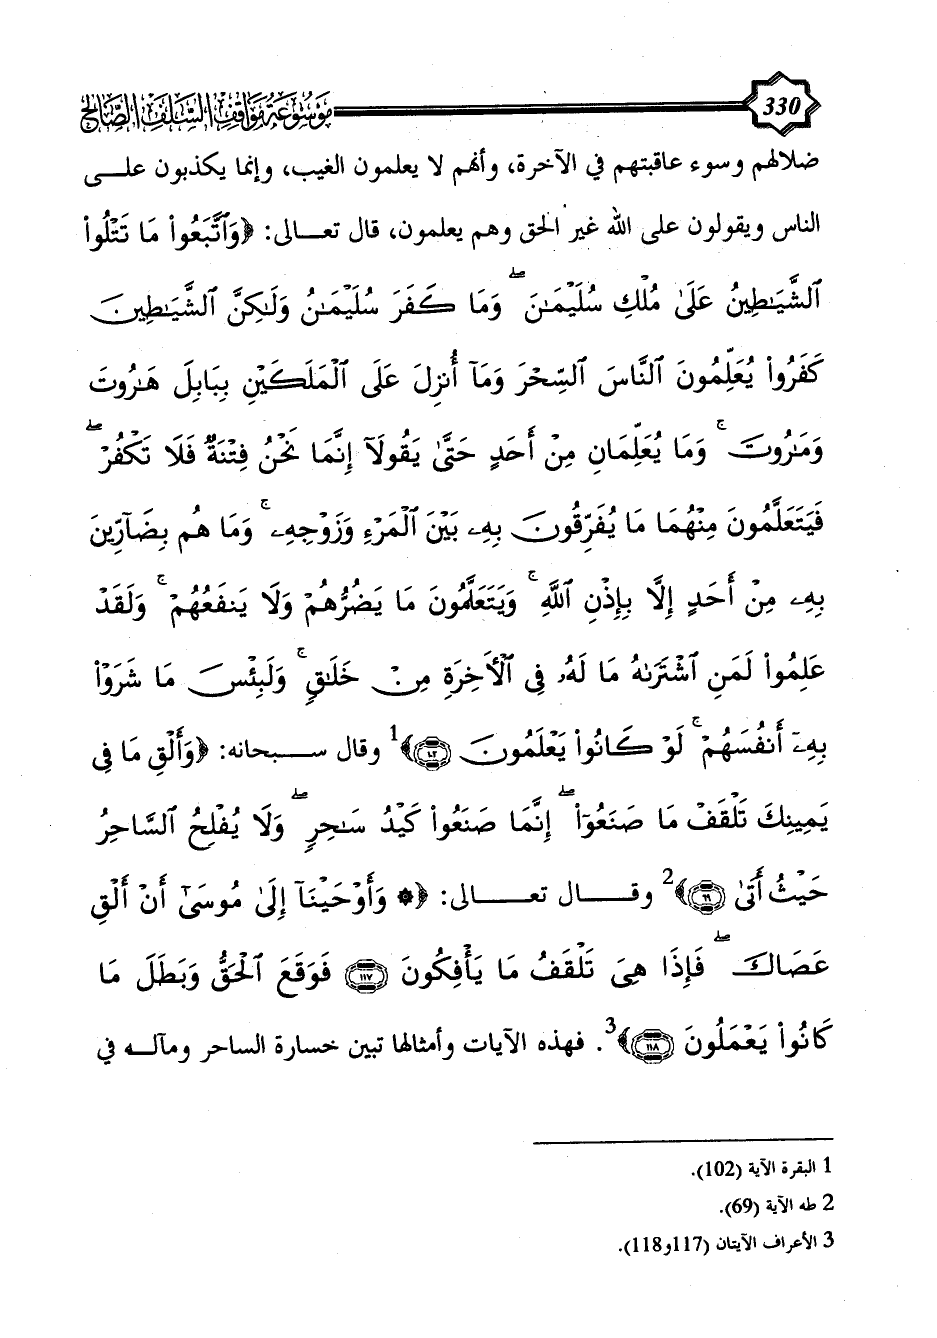 330 موسوعة مواقف السلف الصالح
ضلالهم وسوء عاقبتهم في الآخرة، وأنهم لا يعلمون الغيب، وإنما يكذبون علـــى
الناس ويقولون على الله غير الحق وهم يعلمون، قال تعـــالى: ﴿وَٱتَّبَعُوا۟ مَا تَتْلُوا۟
ٱلشَّيَـٰطِينُ عَلَىٰ مُلْكِ سُلَيْمَـٰنَ ۖ وَمَا كَفَرَ سُلَيْمَـٰنُ وَلَـٰكِنَّ ٱلشَّيَـٰطِينَ
كَفَرُوا۟ يُعَلِّمُونَ ٱلنَّاسَ ٱلسِّحْرَ وَمَآ أُنزِلَ عَلَى ٱلْمَلَكَيْنِ بِبَابِلَ هَـٰرُوتَ
وَمَـٰرُوتَ ۚ وَمَا يُعَلِّمَانِ مِنْ أَحَدٍ حَتَّىٰ يَقُولَآ إِنَّمَا نَحْنُ فِتْنَةٌ فَلَا تَكْفُرْ ۖ
فَيَتَعَلَّمُونَ مِنْهُمَا مَا يُفَرِّقُونَ بِهِۦ بَيْنَ ٱلْمَرْءِ وَزَوْجِهِۦ ۚ وَمَا هُم بِضَآرِّينَ
بِهِۦ مِنْ أَحَدٍ إِلَّا بِإِذْنِ ٱللَّهِ ۚ وَيَتَعَلَّمُونَ مَا يَضُرُّهُمْ وَلَا يَنفَعُهُمْ ۚ وَلَقَدْ
عَلِمُوا۟ لَمَنِ ٱشْتَرَىٰهُ مَا لَهُۥ فِى ٱلْـَٔاخِرَةِ مِنْ خَلَـٰقٍ ۚ وَلَبِئْسَ مَا شَرَوْا۟
بِهِۦٓ أَنفُسَهُمْ ۚ لَوْ كَانُوا۟ يَعْلَمُونَ ١٠٢﴾1 وقال ســـبحانه: ﴿وَأَلْقِ مَا فِى
يَمِينِكَ تَلْقَفْ مَا صَنَعُوٓا۟ ۖ إِنَّمَا صَنَعُوا۟ كَيْدُ سَـٰحِرٍ ۖ وَلَا يُفْلِحُ ٱلسَّاحِرُ
حَيْثُ أَتَىٰ ٦٩﴾2 وقـــال تعـــالى: ﴿۞ وَأَوْحَيْنَآ إِلَىٰ مُوسَىٰٓ أَنْ أَلْقِ
عَصَاكَ ۖ فَإِذَا هِىَ تَلْقَفُ مَا يَأْفِكُونَ ١١٧ فَوَقَعَ ٱلْحَقُّ وَبَطَلَ مَا
كَانُوا۟ يَعْمَلُونَ ١١٨﴾3. فهذه الآيات وأمثالها تبين خسارة الساحر ومآلـــه في
1 البقرة الآية (102).
2 طه الآية (69).
3 الأعراف الآيتان (117و118).